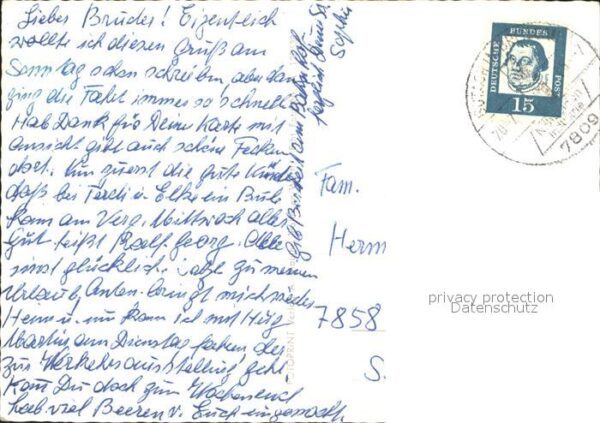 Lieber Bruder! Eigentlich
wollte ich diesen Gruß am
Sonntag schon schreiben, aber dan
ging die Fahrt immer so schnell
Hab Dank für Deine Karte mit
Ansicht gibt auch schöne
dort. Nun zuerst die gute
daß bei Ferdi u. Elke ein Bub
kam am Verg. Mittwoch alles
gut heißt Ralf Georg. Alle
sind glücklich. Jetzt zu meinem
Urlaub, Anton bringt mich wieder
Heim u. nun kann ich mit
Martin am Dienstag fahren, der
zur Verkehrsausstellung geht
Kommst Du doch zum Wochenend
hab viel Beeren u.
am Bahnhof
herzlich Deine
Sophie
Fam.
Herm
7858
S.
DEUTSCHE
BUNDES
POST
15
7809
privacy protection
Datenschutz